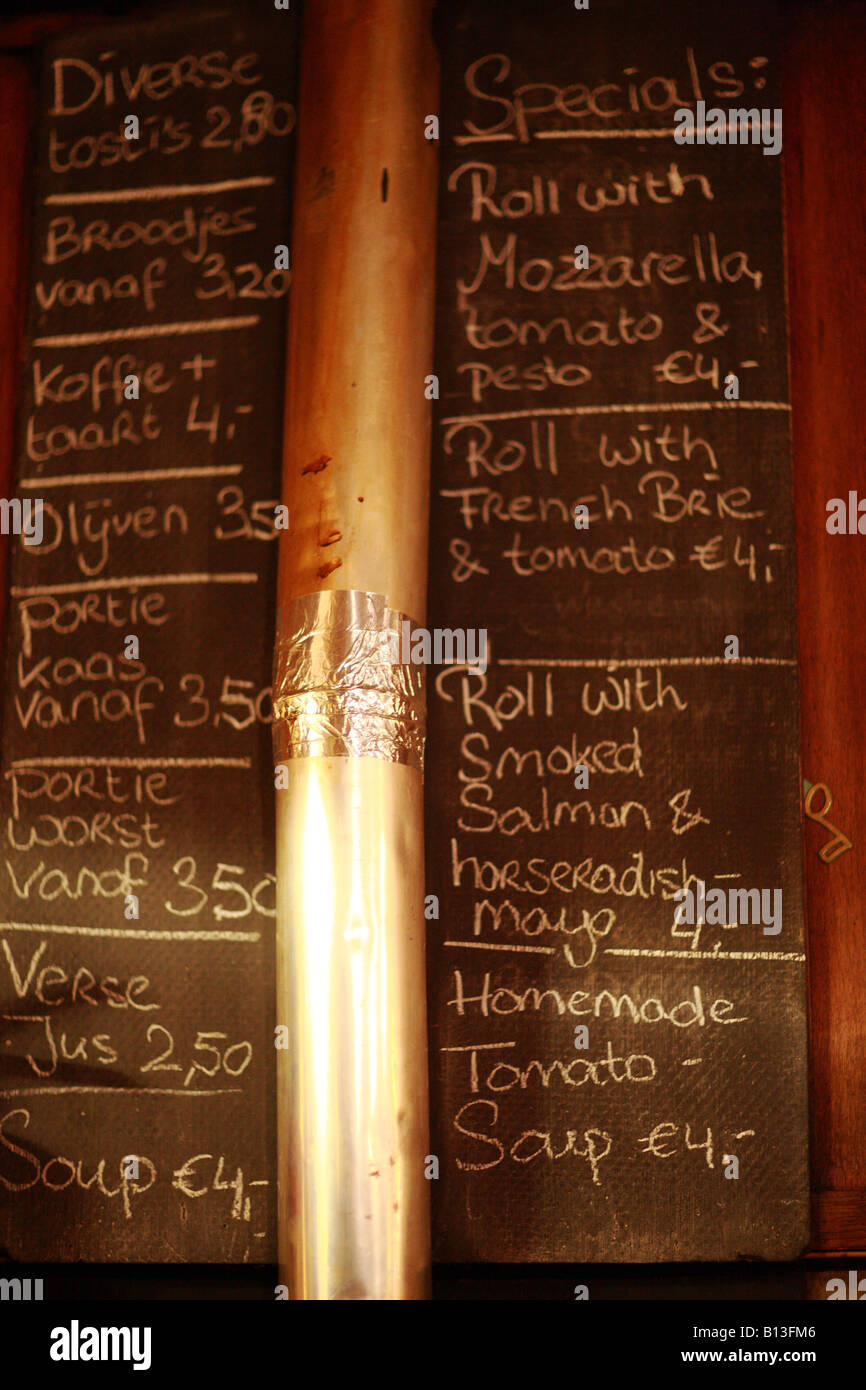 Diverse
tosti's 2,80
Broodjes
vanaf 3,20
Koffie +
taart 4,-
Olijven 3,5
portie
kaas
vanaf 3,50
portie
worst
vanaf 3,50
Verse
Jus 2,50
Soup €4,-
Specials:
Roll with
Mozzarella,
tomato &
pesto €4,-
Roll with
French Brie
& tomato €4,-
Roll with
Smoked
Salmon &
horseradish-
mayo 4,-
Homemade
Tomato -
Soup €4,-
alamy
Image ID: B13FM6
www.alamy.com